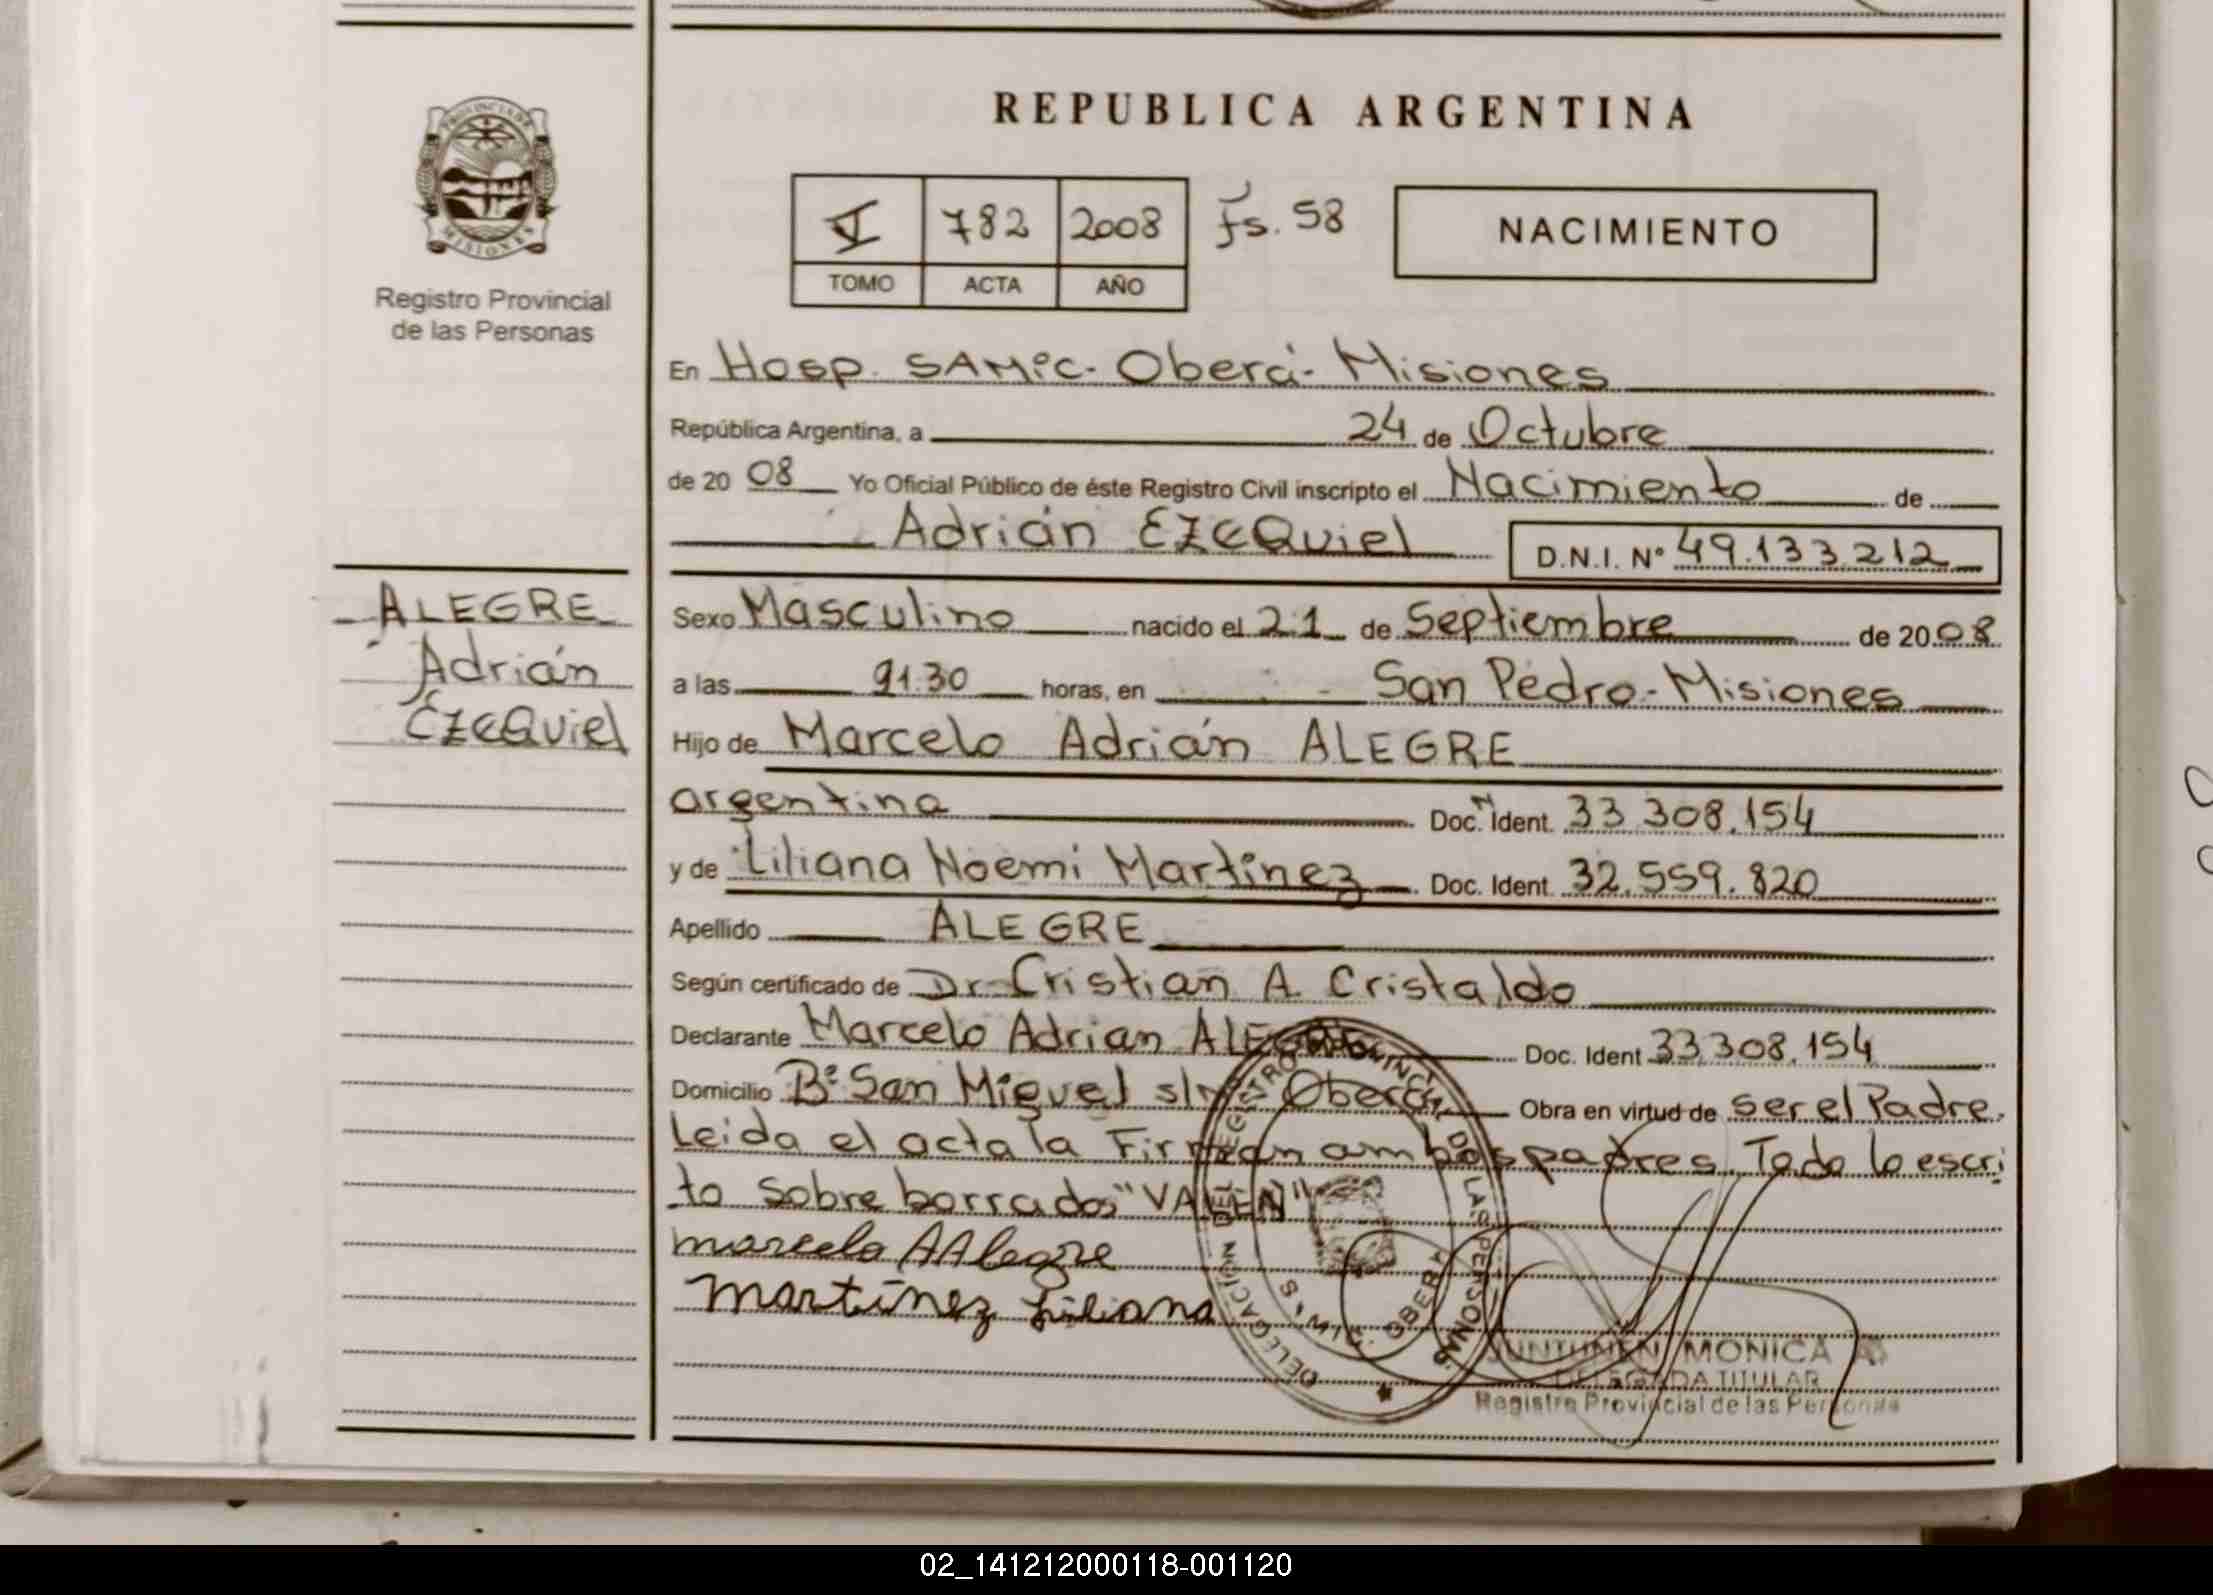 REPUBLICA ARGENTINA
PROVINCIA DE
MISIONES
Registro Provincial
de las Personas
V 782 2008 Fs. 58
TOMO ACTA AÑO
NACIMIENTO
En Hosp. SAMIC - Oberá - Misiones
República Argentina, a 24 de Octubre
de 20 08 Yo Oficial Público de éste Registro Civil inscripto el Nacimiento de
Adrián EZEQuiel D.N.I. Nº 49.133.212
ALEGRE
Adrián
EZEQuiel
Sexo Masculino nacido el 21 de Septiembre de 20 08
a las 9:30 horas, en San Pedro - Misiones
Hijo de Marcelo Adrián ALEGRE
argentina Doc. Ident. 33 308.154
y de Liliana Noemi Martinez Doc. Ident. 32.559.820
Apellido ALEGRE
Según certificado de Dr Cristian A. Cristaldo
Declarante Marcelo Adrian ALEGRE Doc. Ident 33 308.154
Domicilio Bº San Miguel s/nº Oberá Obra en virtud de ser el Padre.
Leida el acta la Firman ambos padres. Todo lo escri
to sobre borrados "VALEN"
marcelo A Alegre
martínez Liliana
DELEGACIÓN DEL REGISTRO PROVINCIAL DE LAS PERSONAS
OBERA
MONICA
DELEGADA TITULAR
Registro Provincial de las Personas
02_141212000118-001120